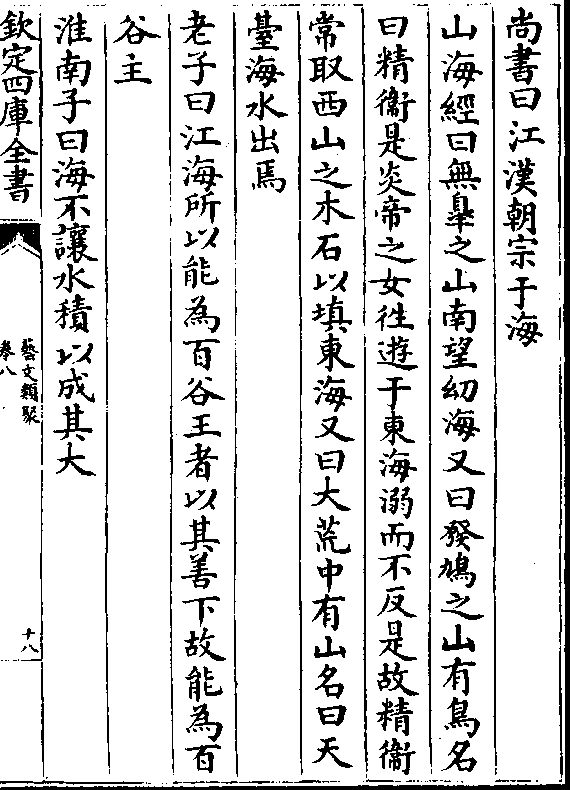 尚書曰江漢朝宗于海
山海經曰無臯之山南望幼海又曰發鳩之山有鳥名
曰精衞是炎帝之女徃遊于東海溺而不反是故精衞
常取西山之木石以填東海又曰大荒中有山名曰天
臺海水出焉
老子曰江海所以能為百谷王者以其善下故能為百
谷主
淮南子曰海不讓水積以成其大
欽定四庫全書
藝文類聚
卷八
十八